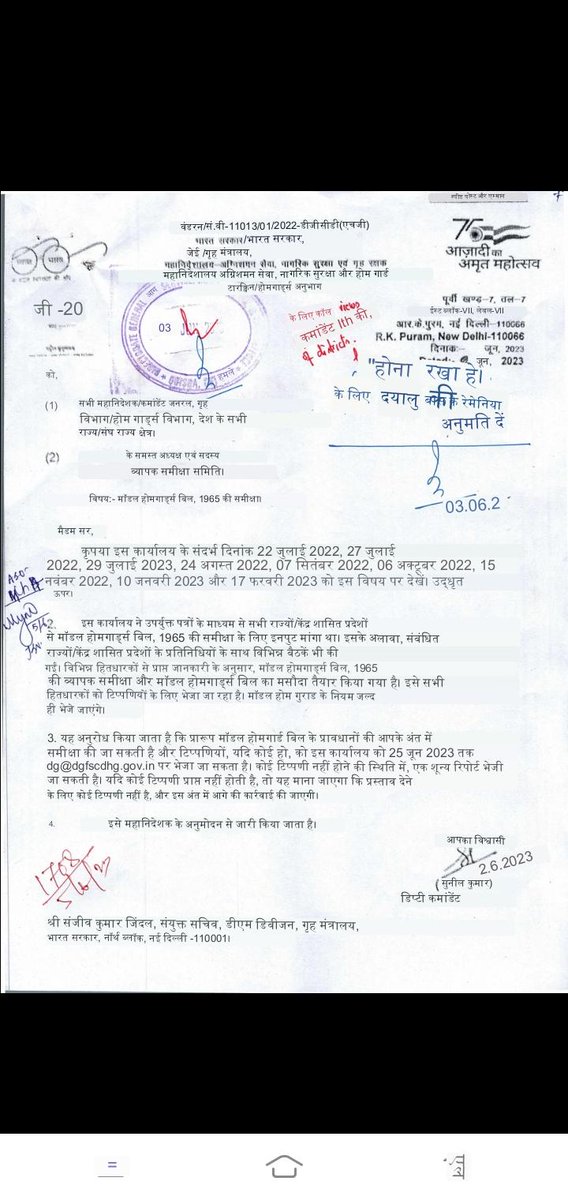 स्पीड पोस्ट और एम्मान
वंडरन/सं.वी-11013/01/2022-डीजीसीडी(एचजी)
भारत सरकार/भारत सरकार,
जेई /गृह मंत्रालय,
महानिदेशालय-अग्निशमन सेवा, नागरिक सुरक्षा एवं गृह रक्षक
महानिदेशालय अग्निशमन सेवा, नागरिक सुरक्षा और होम गार्ड
टारङ्गिन/होमगार्ड्स अनुभाग
75
आज़ादी का
अमृत महोत्सव
जी -20
03
DIRECTORATE GENERAL
के लिए कॉल
कमांडेंट Ith की,
of district
पूर्वी खण्ड-7, तल-7
ईस्ट ब्लॉक-VII, लेवल-VII
आर.के.पुरम, नई दिल्ली-110066
R.K. Puram, New Delhi-110066
दिनाक:- जून, 2023
जून, 2023
"होना रखा है।
के लिए दयालु
अनुमति दें
03.06.2
को,
(1) सभी महानिदेशक/कमांडेंट जनरल, गृह
विभाग/होम गार्ड्स विभाग, देश के सभी
राज्य/संघ राज्य क्षेत्र।
(2) के समस्त अध्यक्ष एवं सदस्य
व्यापक समीक्षा समिति।
विषय:- मॉडल होमगार्ड्स बिल, 1965 की समीक्षा।
मैडम सर,
कृपया इस कार्यालय के संदर्भ दिनांक 22 जुलाई 2022, 27 जुलाई
2022, 29 जुलाई 2023, 24 अगस्त 2022, 07 सितंबर 2022, 06 अक्टूबर 2022, 15
नवंबर 2022, 10 जनवरी 2023 और 17 फरवरी 2023 को इस विषय पर देखें। उद्धृत
ऊपर।
2. इस कार्यालय ने उपर्युक्त पत्रों के माध्यम से सभी राज्यों/केंद्र शासित प्रदेशों
से मॉडल होमगार्ड्स बिल, 1965 की समीक्षा के लिए इनपुट मांगा था। इसके अलावा, संबंधित
राज्यों/केंद्र शासित प्रदेशों के प्रतिनिधियों के साथ विभिन्न बैठकें भी की
गईं। विभिन्न हितधारकों से प्राप्त जानकारी के अनुसार, मॉडल होमगार्ड्स बिल, 1965
की व्यापक समीक्षा और मॉडल होमगार्ड्स बिल का मसौदा तैयार किया गया है। इसे सभी
हितधारकों को टिप्पणियों के लिए भेजा जा रहा है। मॉडल होम गुराड के नियम जल्द
ही भेजे जाएंगे।
3. यह अनुरोध किया जाता है कि प्रारूप मॉडल होमगार्ड बिल के प्रावधानों की आपके अंत में
समीक्षा की जा सकती है और टिप्पणियों, यदि कोई हो, को इस कार्यालय को 25 जून 2023 तक
dg@dgfscdhg.gov.in पर भेजा जा सकता है। कोई टिप्पणी नहीं होने की स्थिति में, एक शून्य रिपोर्ट भेजी
जा सकती है। यदि कोई टिप्पणी प्राप्त नहीं होती है, तो यह माना जाएगा कि प्रस्ताव देने
के लिए कोई टिप्पणी नहीं है, और इस अंत में आगे की कार्रवाई की जाएगी।
4. इसे महानिदेशक के अनुमोदन से जारी किया जाता है।
आपका विश्वासी
2.6.2023
( सुनील कुमार)
डिप्टी कमांडेंट
श्री संजीव कुमार जिंदल, संयुक्त सचिव, डीएम डिवीजन, गृह मंत्रालय,
भारत सरकार, नॉर्थ ब्लॉक, नई दिल्ली -110001।